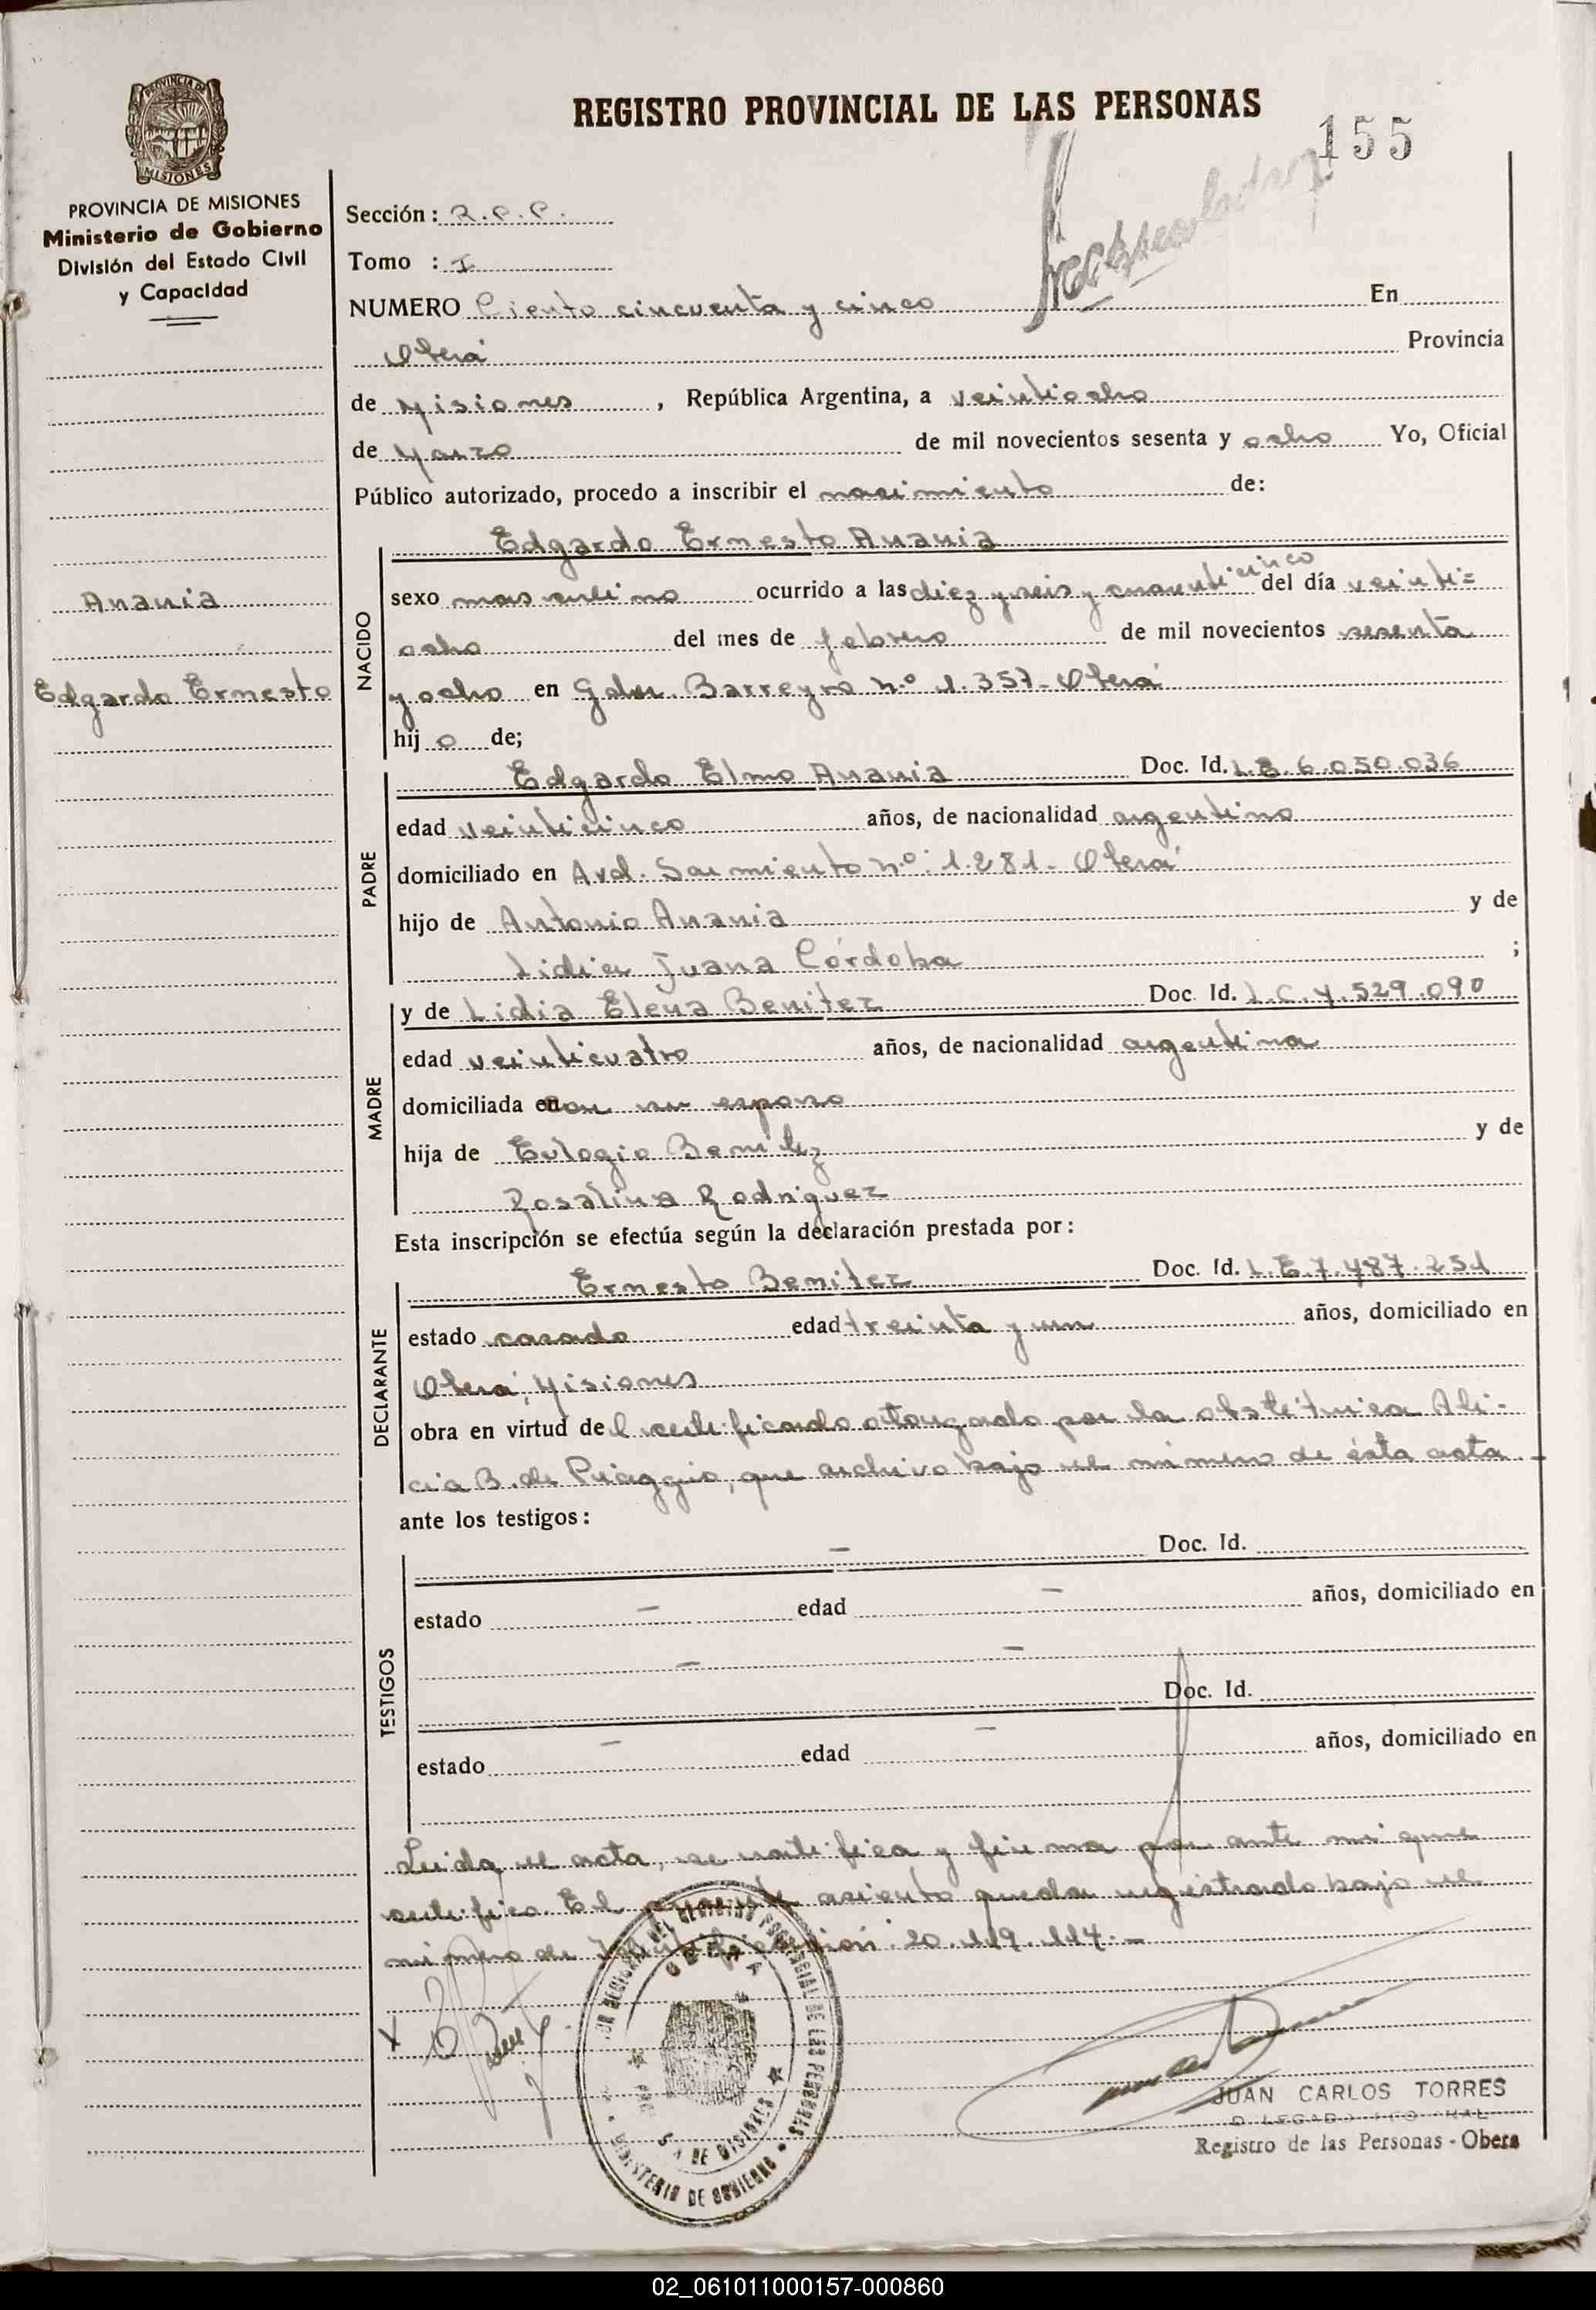 REGISTRO PROVINCIAL DE LAS PERSONAS
155
MISIONES
PROVINCIA DE MISIONES
Ministerio de Gobierno
División del Estado Civil
y Capacidad
Sección: R.P.P.
Tomo : I
NUMERO Ciento cincuenta y cinco En
Oberá Provincia
de Misiones, República Argentina, a veintiocho
de Marzo de mil novecientos sesenta y ocho Yo, Oficial
Público autorizado, procedo a inscribir el nacimiento de:
Anania
Edgardo Ernesto
NACIDO
Edgardo Ernesto Anania
sexo masculino ocurrido a las diez y seis y cuarenticinco del día veinti=
ocho del mes de febrero de mil novecientos sesenta
y ocho en Gdor. Barreyro n.º 1.357- Oberá
hijo de;
PADRE
Edgardo Elmo Anania Doc. Id. L.E. 6.050.036
edad veinticinco años, de nacionalidad argentino
domiciliado en Avd. Sarmiento n.º: 1.281- Oberá
hijo de Antonio Anania y de
Lidia Juana Córdoba ;
MADRE
y de Lidia Elena Benitez Doc. Id. L.C.4.529.090
edad veinticuatro años, de nacionalidad argentina
domiciliada en con su esposo
hija de Eulogio Benitez y de
Rosalina Rodriguez
Esta inscripción se efectúa según la declaración prestada por:
DECLARANTE
Ernesto Benitez Doc. Id. L.E.7.487.251
estado casado edad treinta y un años, domiciliado en
Oberá, Misiones
obra en virtud del certificado otorgado por la obstétrica Ali-
cia B. de Priaggio, que archivo bajo el número de ésta acta.-
ante los testigos:
TESTIGOS
- Doc. Id.
estado - edad - años, domiciliado en
- -
Doc. Id.
estado - edad - años, domiciliado en
Leida el acta, se ratifica y firma por ante mi que
certifico. El presente asiento queda registrado bajo el
número de 20.119.114.-
OBERA
MINISTERIO DE GOBIERNO
JUAN CARLOS TORRES
Registro de las Personas - Obera
02_061011000157-000860